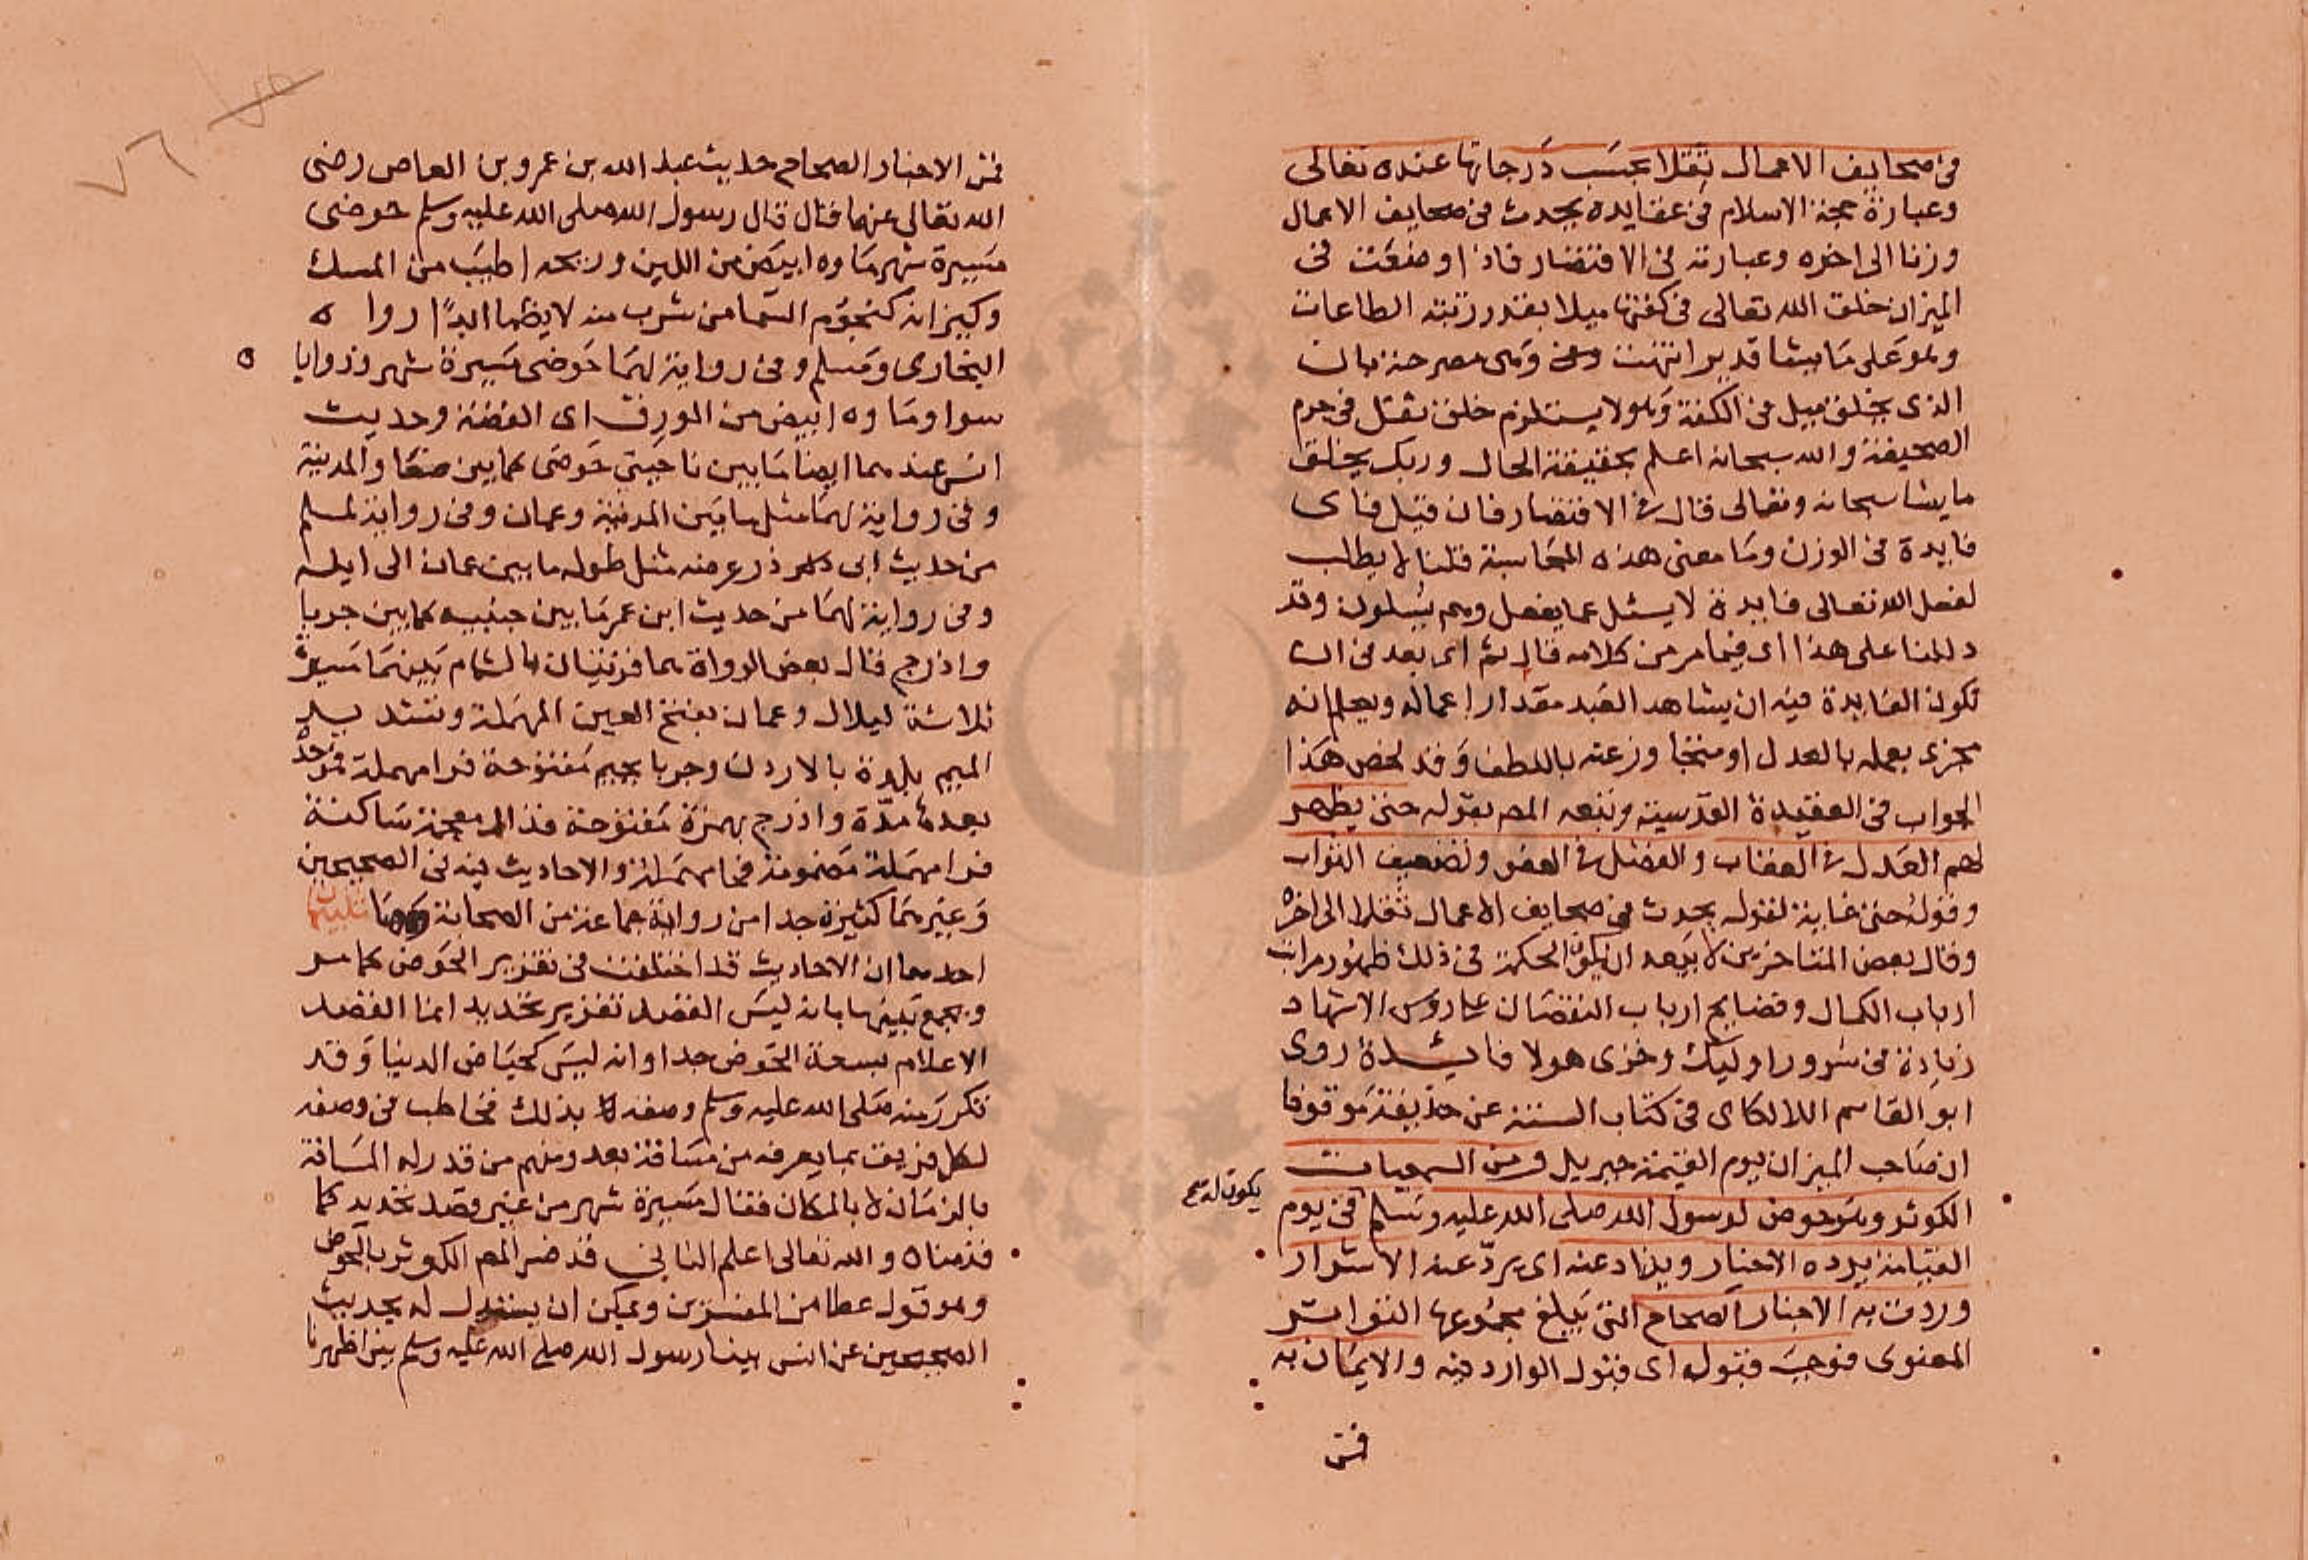 في صحايف الاعمال ثقلا بحسب درجاتها عنده تعالى
وعبارة حجة الاسلام في عقايده يحدث في صحايف الاعمال
وزنا الى اخره وعبارته في الاقتصار فاذا وضعت في
الميزان خلق الله تعالى في كفتها ميلا بقدر رتبة الطاعات
وهو على ما يشا قدير انتهت وهى مصرحة بان
الذي يخلق ميل في الكفة وهو لا يستلزم خلق ثقل في جرم
الصحيفة والله سبحانه اعلم بحقيقة الحال وربك يخلق
ما يشا سبحانه وتعالى قال في الاقتصار فان قيل فاى
فايدة في الوزن وما معنى هذه المحاسبة قلنا لا يطلب
لفعل الله تعالى فايدة لا يسئل عما يفعل وهم يسلون وقد
دللنا على هذا اى فيما مر من كلامه قال ثم اى بعد في ان
تكون الفايدة فيه ان يشاهد العبد مقدار اعماله ويعلم انه
مجزى بعمله بالعدل او متجاوز عنه باللطف وقد لخص هذا
الجواب في العقيدة القدسية وتبعه المص بقوله حتى يظهر
لهم العدل في العقاب والفضل في العفو وتضعيف الثواب
وقوله حتى غاية لقوله يحدث في صحايف الاعمال ثقلا الى اخره
وقال بعض المتاخرين لا يبعد ان يكون الحكمة في ذلك ظهور مراتب
ارباب الكمال وفضايح ارباب النقصان على روس الاشهاد
زيادة في سرور اوليك وخزى هولا فايدة روى
ابو القاسم اللالكاى في كتاب السنة عن حذيفة موقوفا
ان صاحب الميزان يوم القيمة جبريل ومن السمعيات
الكوثر وهو حوض لرسول الله صلى الله عليه وسلم في يوم
يكون له صح
القيامة يرده الاخيار ويذاد عنه اى يرد عنه الاشرار
وردت به الاخبار الصحاح التي يبلغ مجموعها التواتر
المعنوى فوجب قبوله اى قبول الوارد فيه والايمان به
فمن
٧٦
فمن الاخبار الصحاح حديث عبد الله بن عمرو بن العاص رضى
الله تعالى عنهما قال قال رسول الله صلى الله عليه وسلم حوضى
مسيرة شهر ماوه ابيض من اللبن وريحه اطيب من المسك
وكيزانه كنجوم السما من شرب منه لا يظما ابدًا رواه
البخارى ومسلم وفي رواية لهما حوضى مسيرة شهر وزوايا ه
سوا وماوه ابيض من الورق اى الفضة وحديث
انس عندهما ايضا ما بين ناحيتى حوضى كما بين صنعا والمدينة
وفي رواية لهما مثل ما بين المدينة وعمان وفي رواية لمسلم
من حديث ابى ذر عرضه مثل طوله ما بين عمان الى ايلة
وفي رواية لهما من حديث ابن عمر ما بين جنبيه كما بين جربا
واذرح قال بعض الرواة هما قريتان بالشام بينهما مسيرة
ثلاثة ليال وعمان بفتح العين المهملة وتشديد
الميم بلدة بالاردن وجربا بجيم مفتوحة فرا مهملة فموحدة
بعدها مدّة واذرح بهمزة مفتوحة فذال معجمة ساكنة
فرا مهملة مضمومة فحا مهملة والاحاديث فيه في الصحيحين
وغيرهما كثيرة جدا من رواية جماعة من الصحابة وهنا تنبيهان
احدهما ان الاحاديث قد اختلفت في تقدير الحوض كما مر
ويجمع بينها بانه ليس القصد تقدير تحديد انما القصد
الاعلام بسعة الحوض جدا وانه ليس كحياض الدنيا وقد
تكرر منه صلى الله عليه وسلم وصفه بذلك فخاطب في وصفه
لكل فريق بما يعرفه من مسافة بعد ومنهم من قدر له المسافة
بالزمان لا بالمكان فقال مسيرة شهر من غير قصد تحديد كما
قدمناه والله تعالى اعلم الثاني قد فسر المص الكوثر بالحوض
وهو قول عطا من المفسرين ويمكن ان يستدل له بحديث
الصحيحين عن انس بينا رسول الله صلى الله عليه وسلم بين اظهرنا